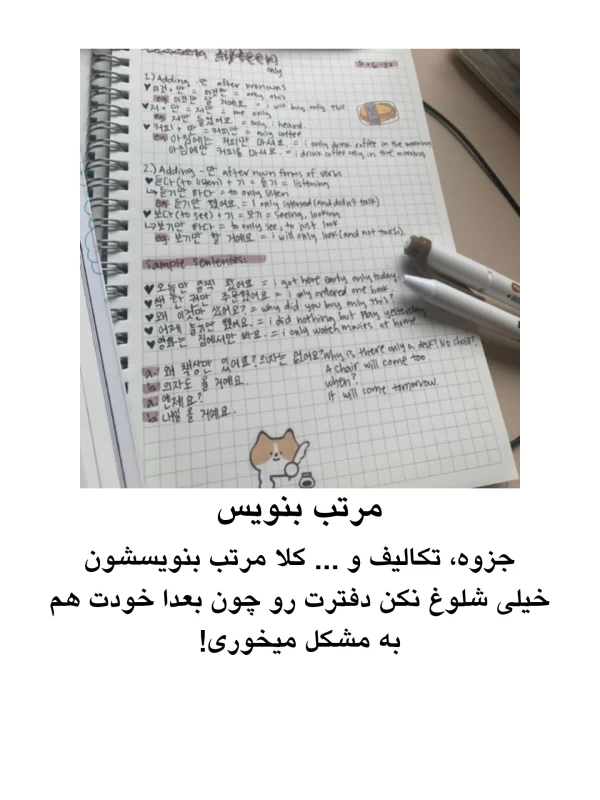 Lesson fifteen
only
1.) Adding -만 after pronouns
♥ 이것 + 만 = 이것만 = only this
eg. 이것만 살 거예요. = i will buy only this.
♥ 저 + 만 = 저만 = me only
eg. 저만 들었어요. = only i heard.
♥ 커피 + 만 = 커피만 = only coffee
eg. 아침에는 커피만 마셔요. = i only drink coffee in the morning.
아침에만 커피를 마셔요. = i drink coffee only in the morning.
2.) Adding -만 after noun forms of verbs
♥ 듣다 (to listen) + 기 = 듣기 = listening
↳ 듣기만 하다 = to only listen
eg. 듣기만 했어요. = I only listened (and didn't talk)
♥ 보다 (to see) + 기 = 보기 = seeing, looking
↳ 보기만 하다 = to only see, to just look
eg. 보기만 할 거예요. = i will only look (and not touch)
sample sentences:
♥ 오늘만 일찍 왔어요 = i got here early only today.
♥ 책 한 권만 주문했어요 = i only ordered one book.
♥ 왜 이것만 샀어요? = why did you buy only this?
♥ 어제 놀기만 했어요. = i did nothing but play yesterday
♥ 영화는 집에서만 봐요. = i only watch movies at home.
a. 왜 책상만 있어요? 의자는 없어요? Why is there only a desk? No chair?
b. 의자도 올 거예요. A chair will come too
a. 언제요? when?
b. 내일 올 거예요. It will come tomorrow.
مرتب بنویس
جزوه، تکالیف و ... کلا مرتب بنویسشون
خیلی شلوغ نکن دفترت رو چون بعدا خودت هم
به مشکل میخوری!